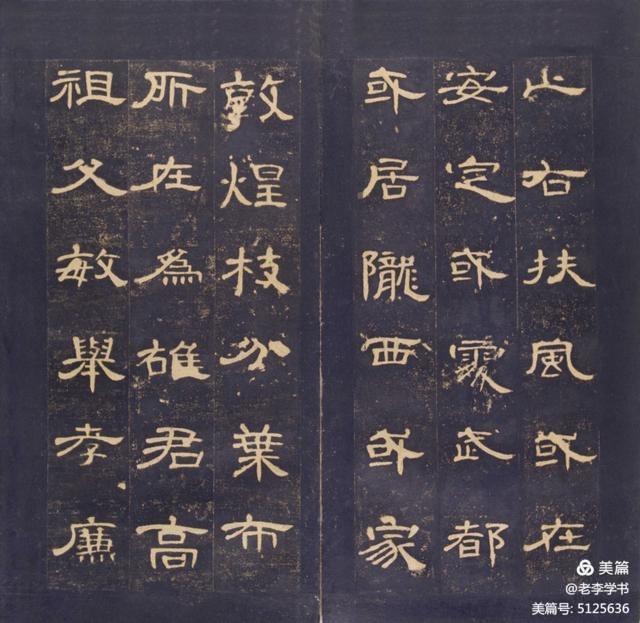 止右扶風或在
安定或處武都
或居隴西或家
敦煌枝分葉布
所在為雄君高
祖父敏舉孝廉
美篇
@老李学书
美篇号: 5125636